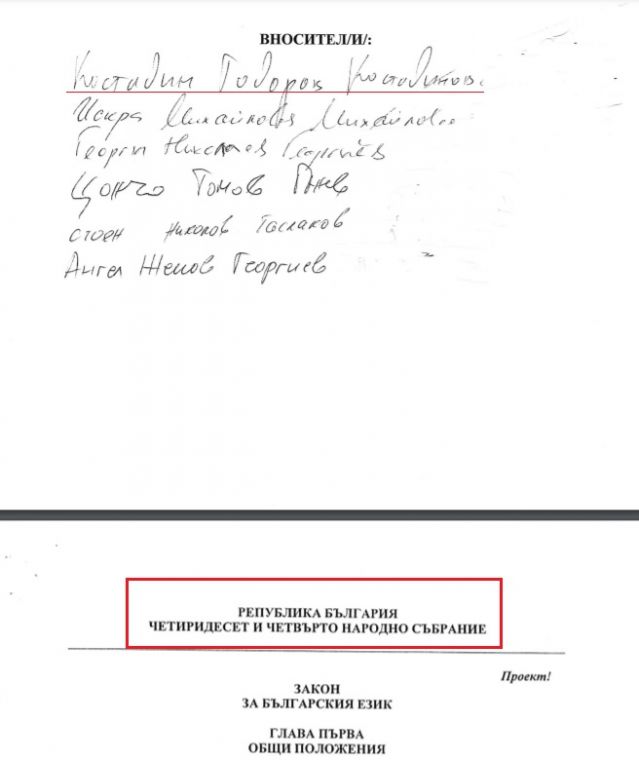 ВНОСИТЕЛ/И/:
Костадин Тодоров Костадинов
Искра Михайлова Михайлова
Георги Николаев Георгиев
Цончо Томов Ганев
стоен николов Таслаков
Ангел Жеков Георгиев
РЕПУБЛИКА БЪЛГАРИЯ
ЧЕТИРИДЕСЕТ И ЧЕТВЪРТО НАРОДНО СЪБРАНИЕ
Проект!
ЗАКОН
ЗА БЪЛГАРСКИЯ ЕЗИК
ГЛАВА ПЪРВА
ОБЩИ ПОЛОЖЕНИЯ